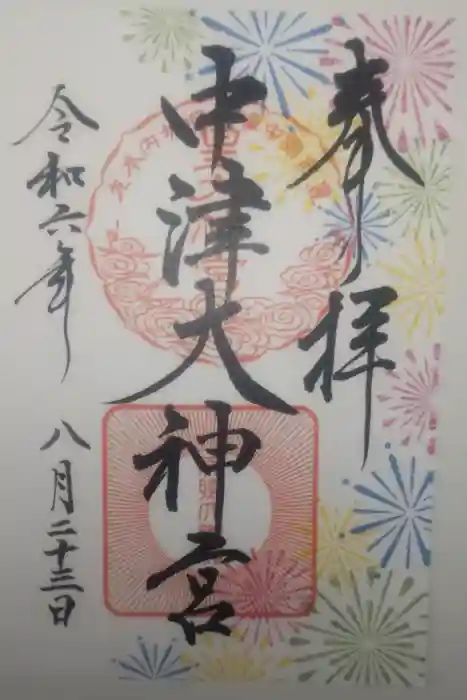 奉拝
中津大神宮
令和六年 八月二十三日